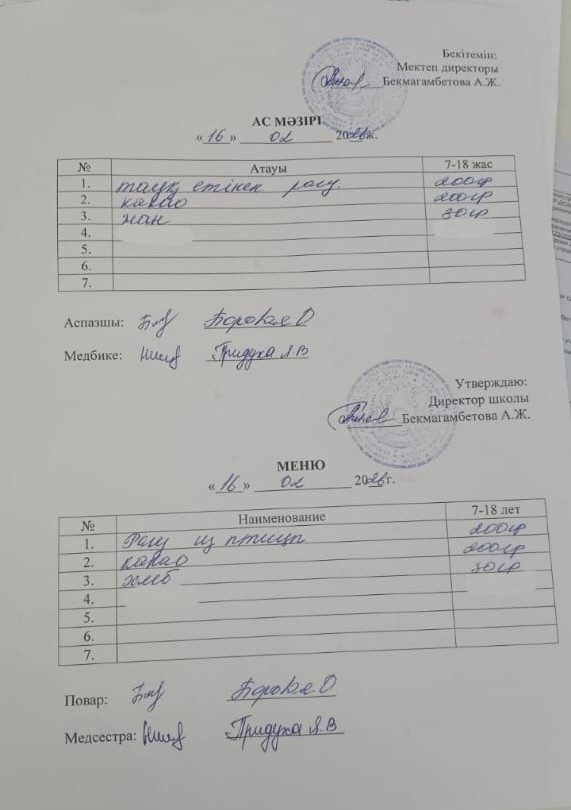 Бекітемін:
Мектеп директоры
Бекмагамбетова А.Ж.
АС МӘЗІРІ
«16» 02 2026ж.
№ Атауы 7-18 жас
1. тауық етінен рагу. 200гр
2. какао 200гр
3. нан 30гр
4.
5.
6.
7.
Аспазшы: Боровая О
Медбике: Придуха Л В
Утверждаю:
Директор школы
Бекмагамбетова А.Ж.
МЕНЮ
«16» 02 2026г.
№ Наименование 7-18 лет
1. Рагу из птицы 200гр
2. какао 200гр
3. хлеб 30гр
4.
5.
6.
7.
Повар: Боровая О
Медсестра: Придуха Л.В